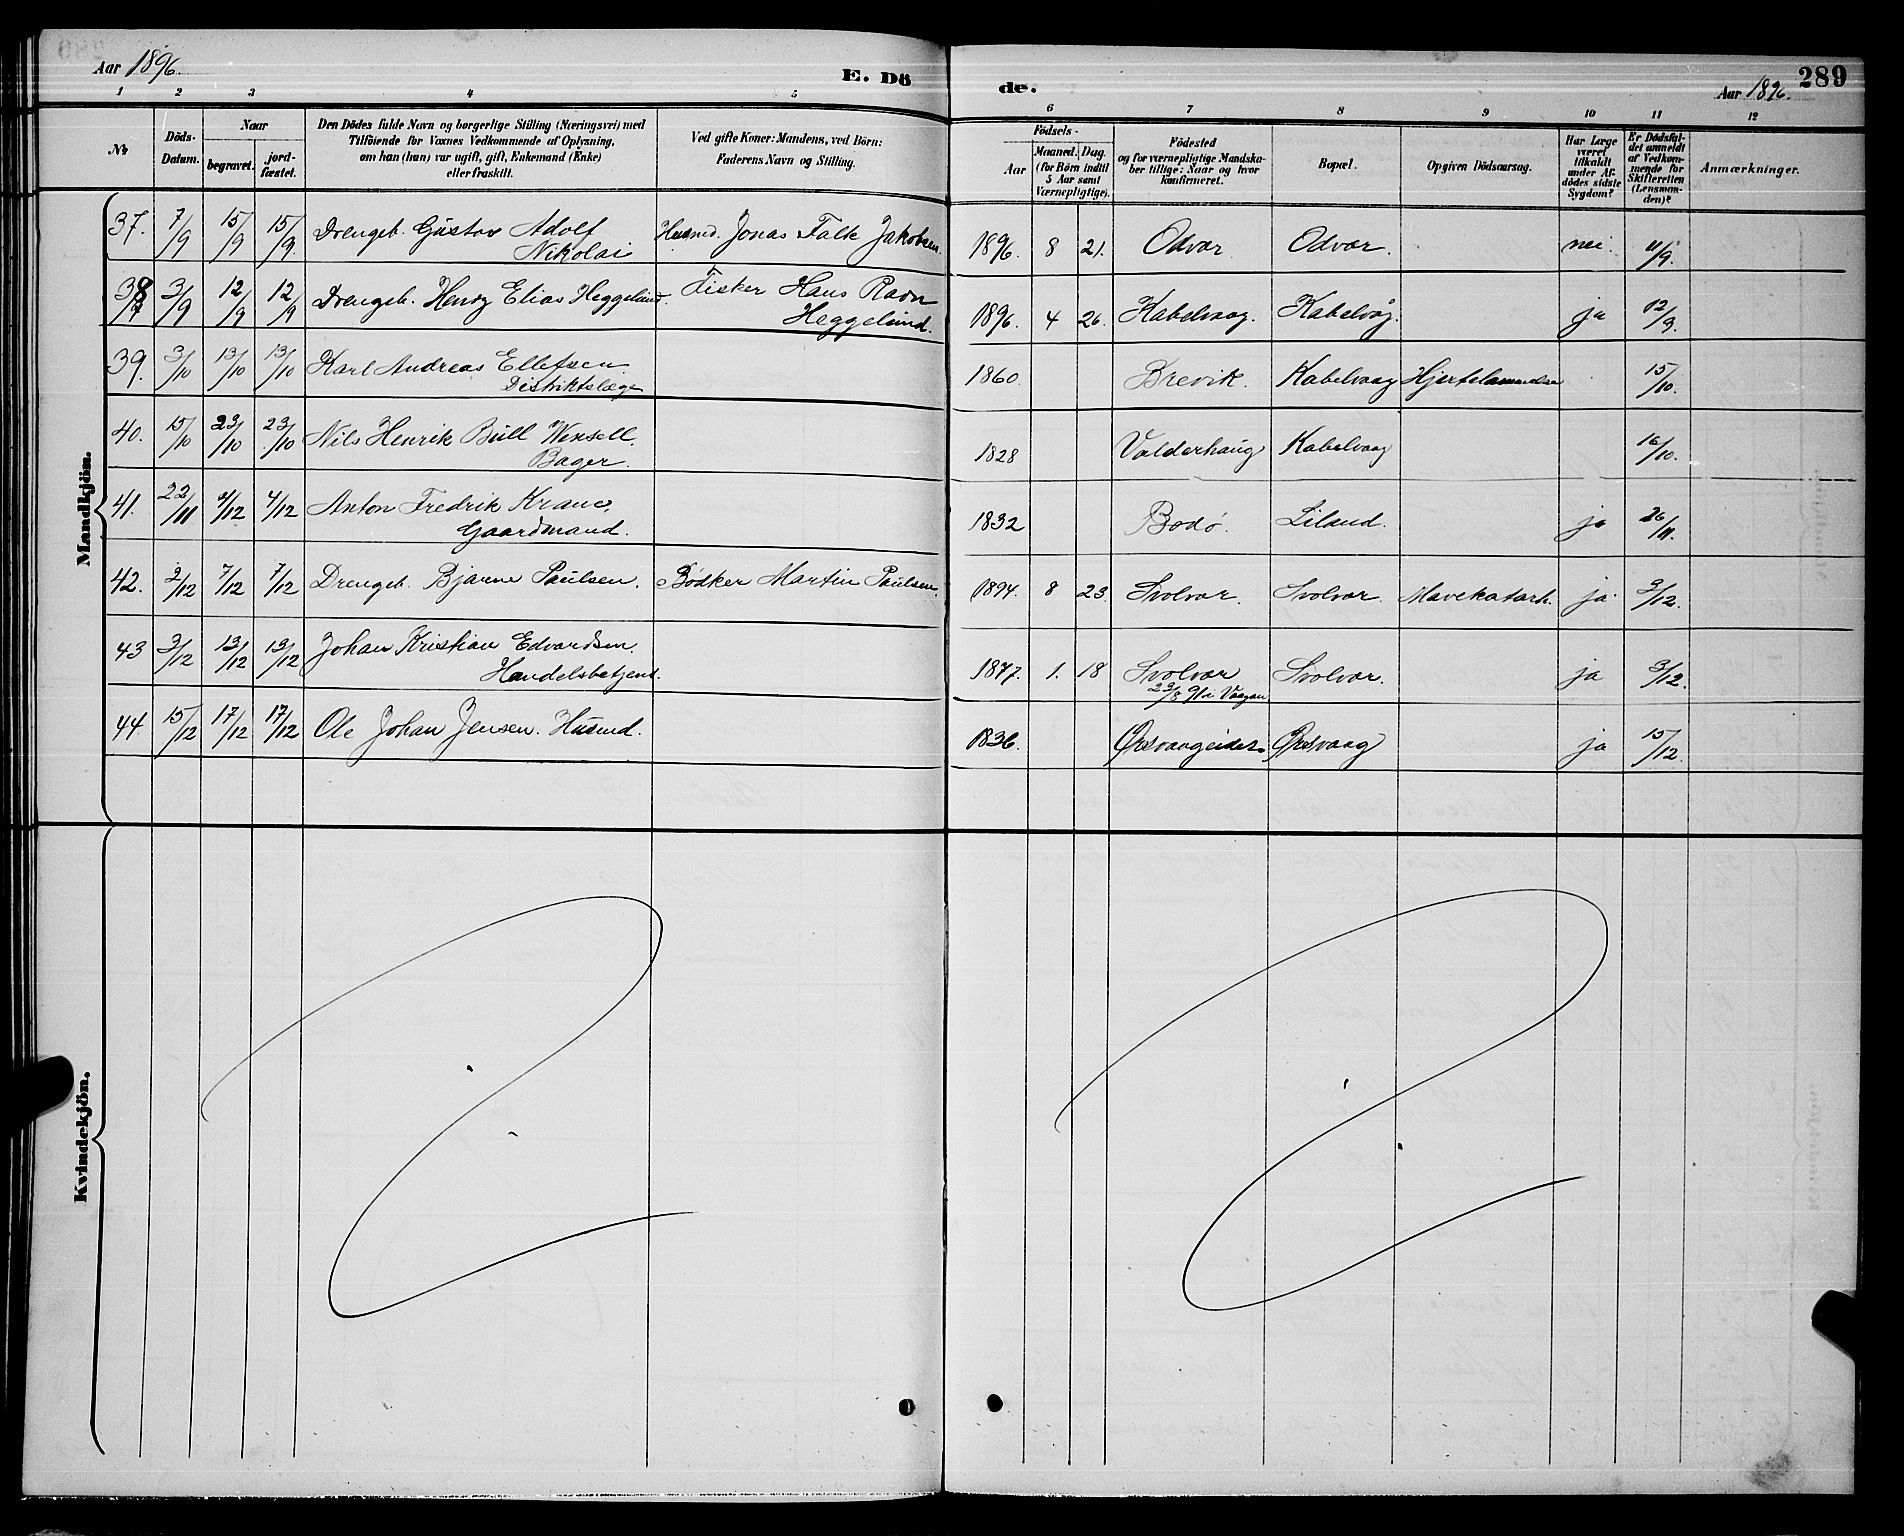 Aar 1896.
E. Dö
de.
289
Aar 1896.
1 2 3 4 5 6 7 8 9 10 11 12
№
Döds-
Datum.
Naar
begravet.
jord-
fæstet.
Den Dödes fulde Navn og borgerlige Stilling (Næringsvei) med
Tilföiende for Voxnes Vedkommende af Oplysning,
om han (hun) var ugift, gift, Enkemand (Enke)
eller fraskilt.
Ved gifte Koner: Mandens, ved Börn:
Faderens Navn og Stilling.
Födsels-
Aar
Maaned.
Dag.
(for Börn indtil
5 Aar samt
Værnepligtige).
Födested
og for værnepligtige Mandska-
ber tillige: Naar og hvor
konfirmeret.
Bopæl.
Opgiven Dödsaarsag.
Har Læge
været
tilkaldt
under Af-
dödes sidste
Sygdom?
Er Dödsfal-
det anmeldt
af Vedkom-
mende for
Skifteretten
(Lensman-
den)?
Anmærkninger.
Mandkjön.
37. 7/9 15/9 15/9. Drengeb. Gustav Adolf
Nikolai
Husmd. Jonas Falk Jakobsen. 1896. 8 21. Odvær Odvær. nei. 11/9.
38 3/9 12/9 12/9 Drengeb. Henry Elias Heggelund. Fisker Hans Ravn
Heggelund.
1896. 4 26. Kabelvaag. Kabelvåg. ja 12/9.
39. 3/10 13/10 13/10 Karl Andreas Ellefsen
Distriktslæge
1860. Brevik. Kabelvaag Hjertelammelse 15/10.
40. 15/10 23/10 23/10 Nils Henrik Bull Wensell.
Bager.
1828 Valderhaug Kabelvaag 16/10.
41. 22/11 4/12 4/12 Anton Fredrik Krane,
Gaardmand.
1832 Bodø. Liland. ja 26/11.
42. 2/12 7/12 7/12 Drengeb. Bjarne Paulsen. Bødker Martin Paulsen. 1894. 8 23 Svolvær. Svolvær. Mavekatarh. ja 3/12.
43 3/12 13/12 13/12 Johan Kristian Edvardsen.
Handelsbetjent.
1877. 1. 18 Svolvær
Svolvær. ja 3/12.
44. 15/12 17/12 17/12 Ole Johan Jensen. Husmd. 1836. Ørsvaageidet Ørsvaag ja 15/12.
Kvindekjön.